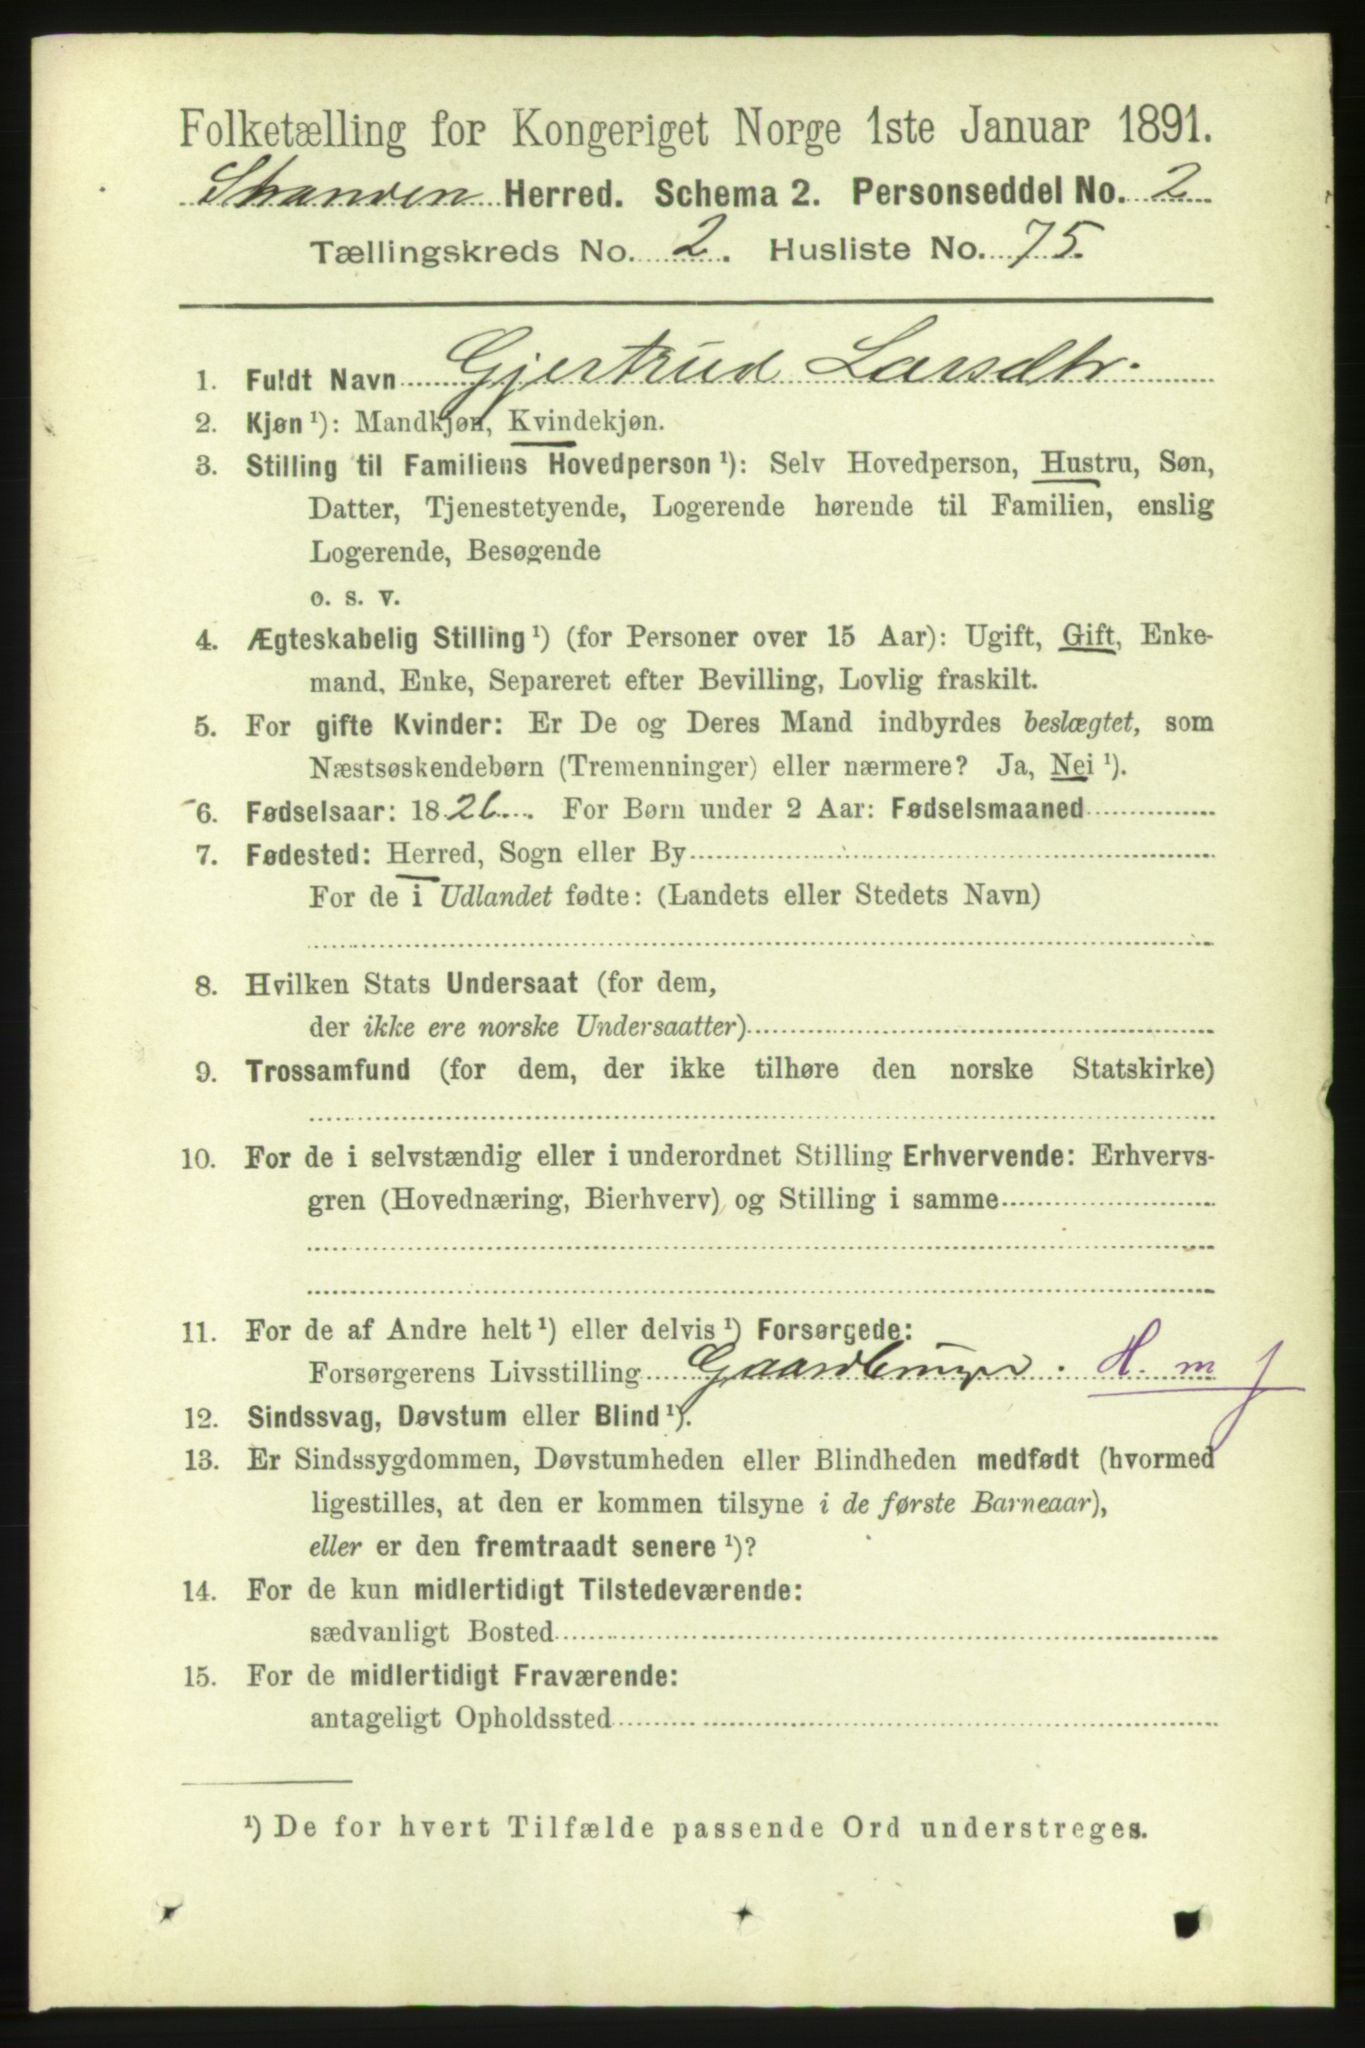 Folketælling for Kongeriget Norge 1ste Januar 1891.
Stranden Herred. Schema 2. Personseddel No. 2
Tællingskreds No. 2. Husliste No. 75.
1. Fuldt Navn Gjertrud Larsdtr.
2. Kjøn ¹): Mandkjøn, Kvindekjøn.
3. Stilling til Familiens Hovedperson ¹): Selv Hovedperson, Hustru, Søn,
Datter, Tjenestetyende, Logerende hørende til Familien, enslig
Logerende, Besøgende
o. s. v.
4. Ægteskabelig Stilling ¹) (for Personer over 15 Aar): Ugift, Gift, Enke-
mand, Enke, Separeret efter Bevilling, Lovlig fraskilt.
5. For gifte Kvinder: Er De og Deres Mand indbyrdes beslægtet, som
Næstsøskendebørn (Tremenninger) eller nærmere? Ja, Nei ¹).
6. Fødselsaar: 1826. For Børn under 2 Aar: Fødselsmaaned
7. Fødested: Herred, Sogn eller By
For de i Udlandet fødte: (Landets eller Stedets Navn)
8. Hvilken Stats Undersaat (for dem,
der ikke ere norske Undersaatter)
9. Trossamfund (for dem, der ikke tilhøre den norske Statskirke)
10. For de i selvstændig eller i underordnet Stilling Erhvervende: Erhvervs-
gren (Hovednæring, Bierhverv) og Stilling i samme
11. For de af Andre helt ¹) eller delvis ¹) Forsørgede:
Forsørgerens Livsstilling Gaardbruger. H. m f
12. Sindssvag, Døvstum eller Blind ¹).
13. Er Sindssygdommen, Døvstumheden eller Blindheden medfødt (hvormed
ligestilles, at den er kommen tilsyne i de første Barneaar),
eller er den fremtraadt senere ¹)?
14. For de kun midlertidigt Tilstedeværende:
sædvanligt Bosted
15. For de midlertidigt Fraværende:
antageligt Opholdssted
¹) De for hvert Tilfælde passende Ord understreges.